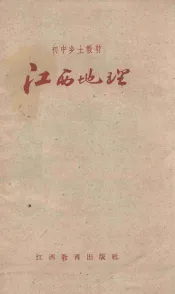 初中乡土教材
江西地理
江西教育出版社